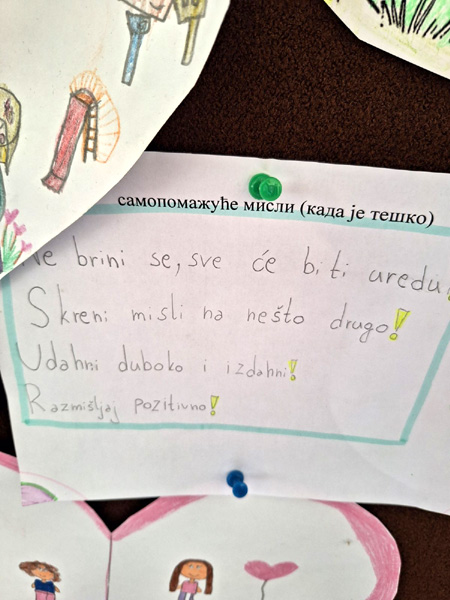 самопомажуће мисли (када је тешко)
Ne brini se, sve će biti uredu!
Skreni misli na nešto drugo!
Udahni duboko i izdahni!
Razmišljaj pozitivno!